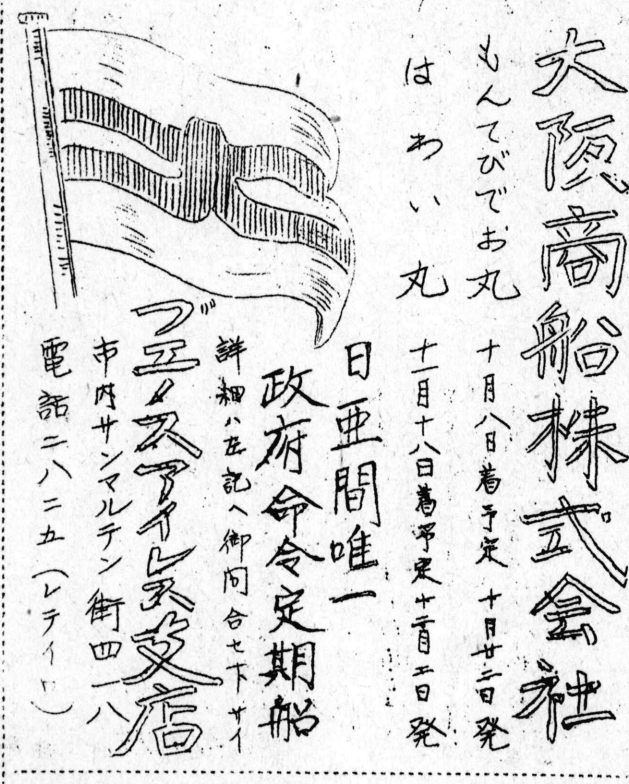 大阪商船株式会社
もんてびでお丸 十月八日着予定 十月廿二日発
はわい丸 十一月十八日着予定 十二月二日発
日亜間唯一
政府命令定期船
詳細ハ左記ヘ御問合セ下サイ
ブエノスアイレス支店
市内サンマルテン街四一八
電話二八二五(レテイロ)